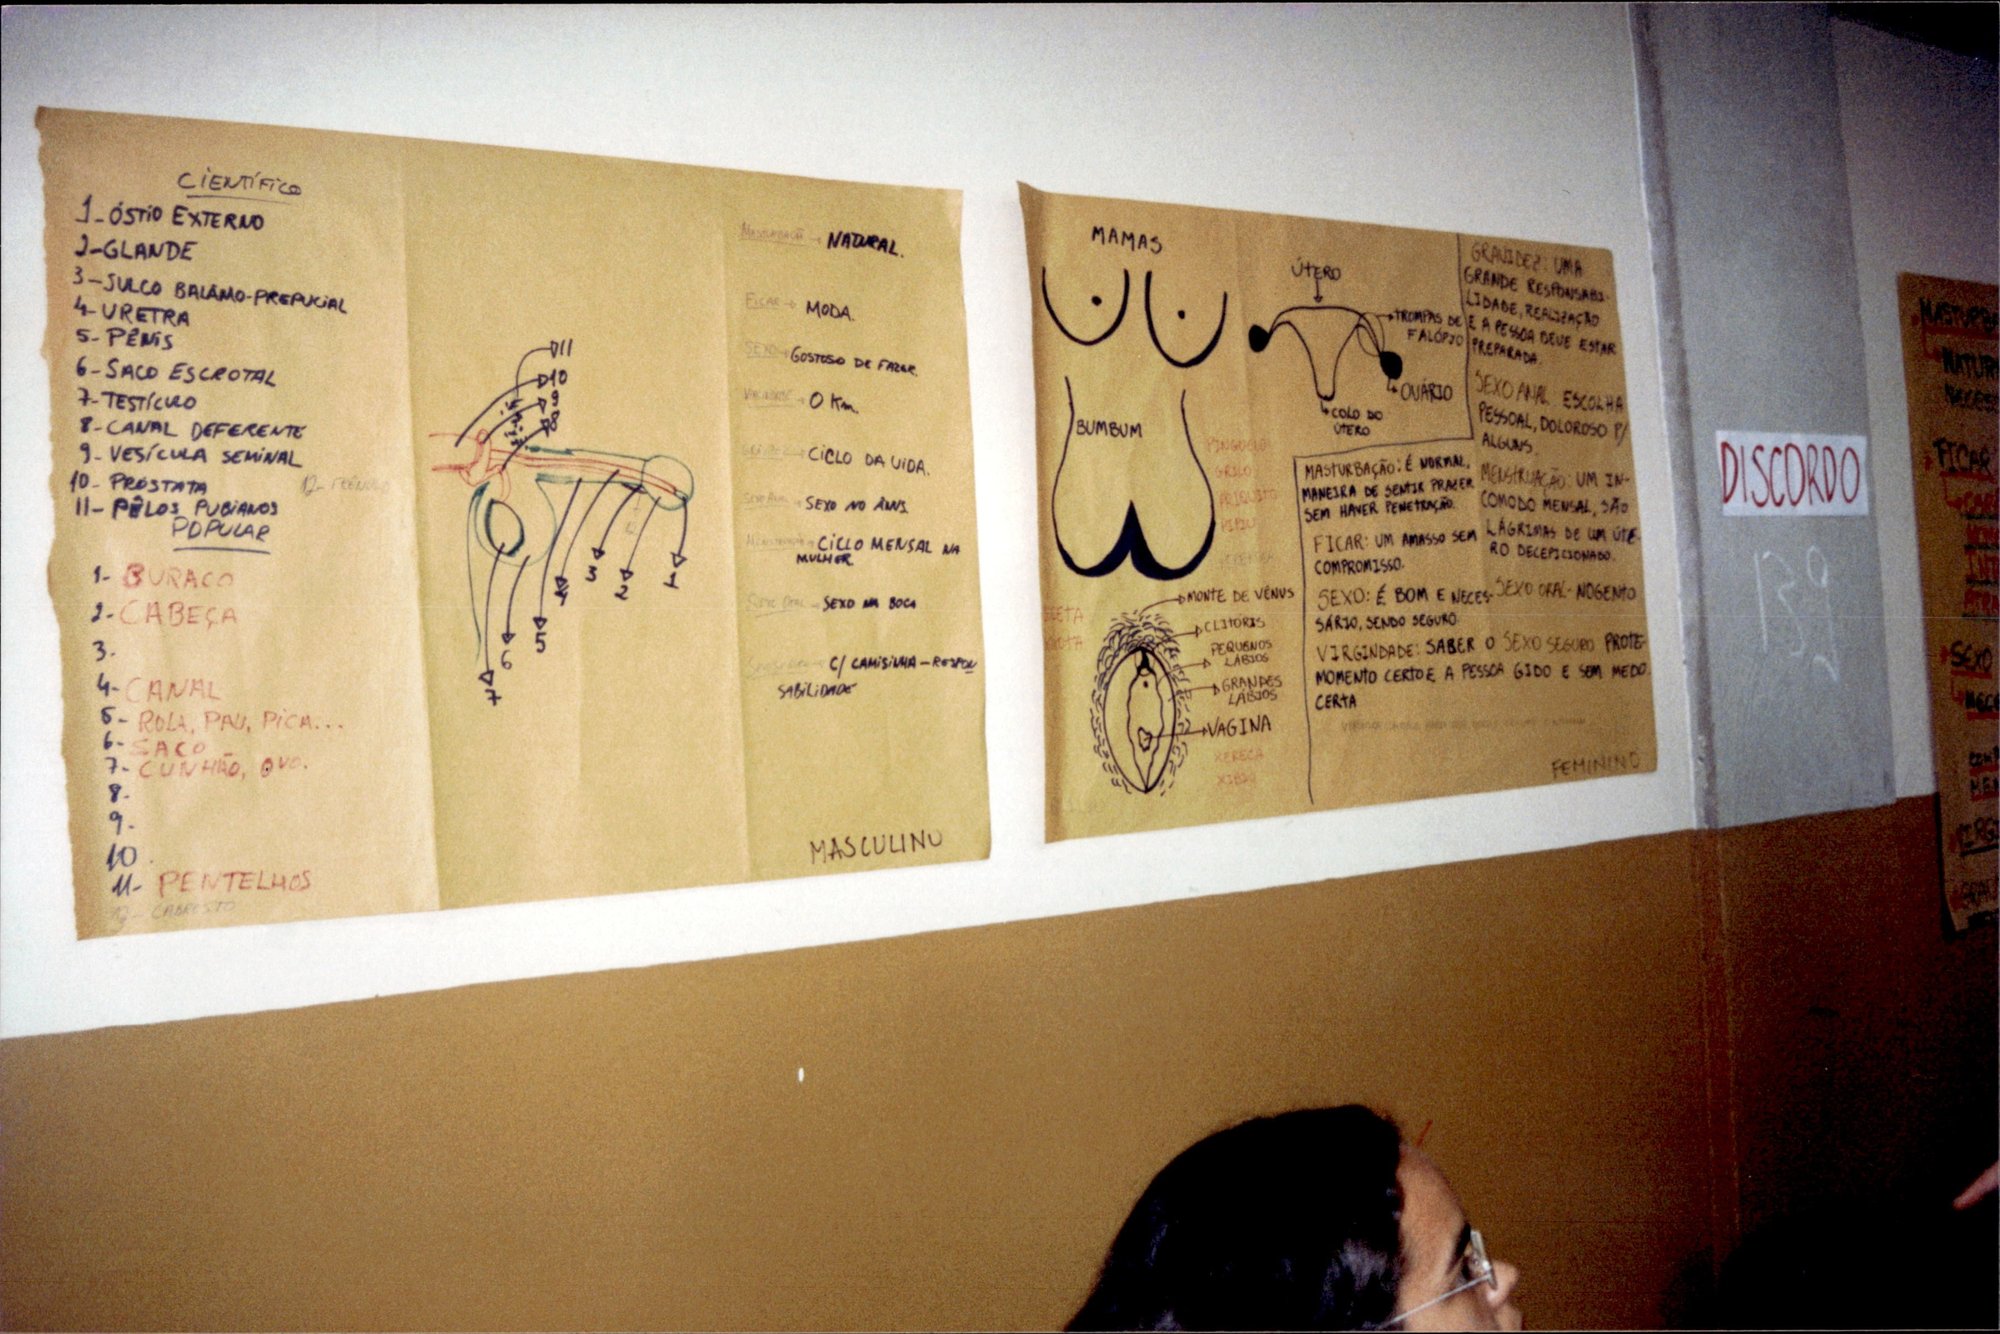 CIENTÍFICO
1-ÓSTIO EXTERNO
2-GLANDE
3-SULCO BALAMO-PREPUCIAL
4-URETRA
5-PÊNIS
6-SACO ESCROTAL
7-TESTÍCULO
8-CANAL DEFERENTE
9-VESÍCULA SEMINAL
10-PRÓSTATA
11-PÊLOS PUBIANOS
POPULAR
1- BURACO
2- CABEÇA
3.
4- CANAL
5- ROLA, PAU, PICA...
6- SACO
7- CUNHÃO, OVO.
8-
9-
10
11- PENTELHOS
12- CABRESTO
11
10
9
8
1
2
3
4
5
6
7
MASTURBAÇÃO → NATURAL.
FICAR → MODA.
SEXO → GOSTOSO DE FAZER.
VIRGINDADE → 0 Km.
→ CICLO DA VIDA.
SEXO ANAL → SEXO NO ÂNUS.
MENSTRUAÇÃO → CICLO MENSAL NA
MULHER
SEXO ORAL → SEXO NA BOCA
C/ CAMISINHA-RESPON
SABILIDADE
MASCULINO
MAMAS
BUMBUM
ÚTERO
TROMPAS DE
FALÓPIO
OVÁRIO
COLO DO
ÚTERO
GRILO
PERIQUITO
PIPIU
MONTE DE VÊNUS
CLITÓRIS
PEQUENOS
LÁBIOS
GRANDES
LÁBIOS
VAGINA
XERECA
XIBIU
GRAVIDEZ: UMA
GRANDE RESPONSABI-
LIDADE, REALIZAÇÃO
E A PESSOA DEVE ESTAR
PREPARADA.
SEXO ANAL: ESCOLHA
PESSOAL, DOLOROSO P/
ALGUNS.
MENSTRUAÇÃO: UM IN-
COMODO MENSAL, SÃO
LÁGRIMAS DE UM ÚTE-
RO DECEPICIONADO.
SEXO ORAL- NOGENTO
SEXO SEGURO PROTE-
GIDO E SEM MEDO
MASTURBAÇÃO: É NORMAL,
MANEIRA DE SENTIR PRAZER
SEM HAVER PENETRAÇÃO.
FICAR: UM AMASSO SEM
COMPROMISSO.
SEXO: É BOM E NECES-
SÁRIO, SENDO SEGURO.
VIRGINDADE: SABER O
MOMENTO CERTO E A PESSOA
CERTA
FEMININO
DISCORDO
FICAR
SEXO